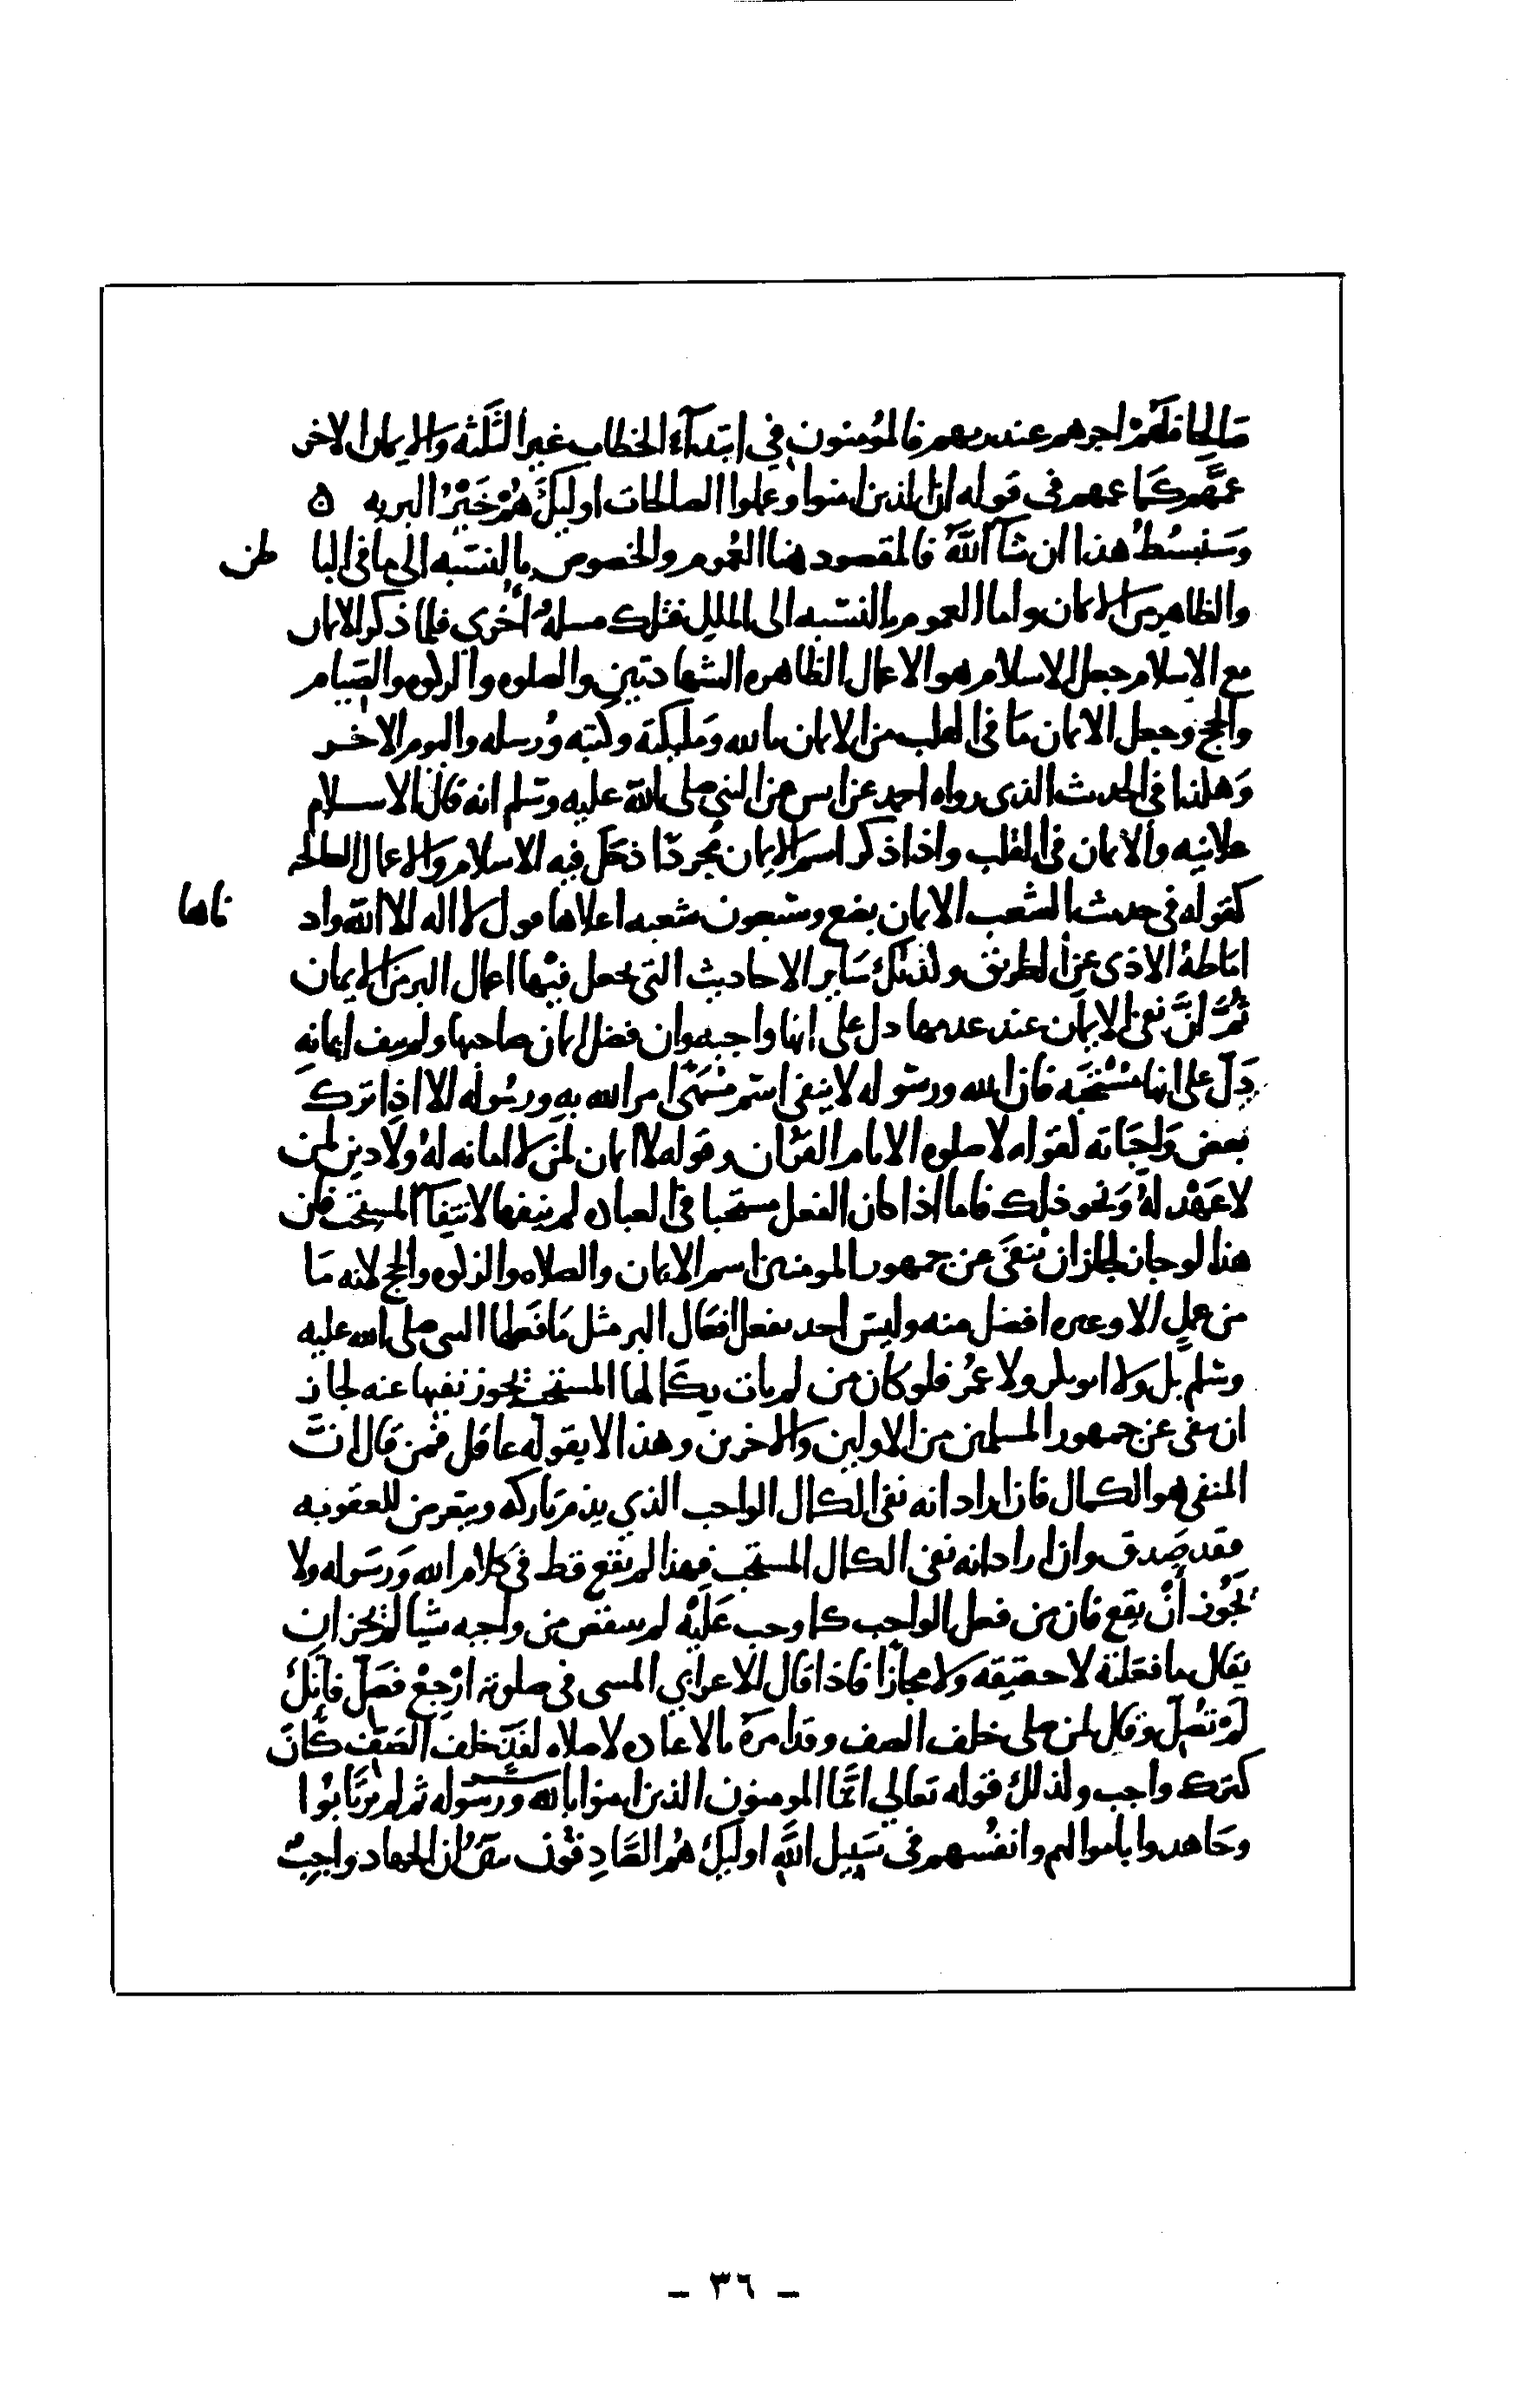 صالحا فلهم اجرهم عند ربهم فالمؤمنون في ابتدآء الخطاب غير الثلثه والايمان الاخر
عمهم كما عمهم في قوله ان الذين امنوا وعملوا الصالحات اوليك هم خير البريه ٥
وسنبسط هذا ان شآ الله فالمقصود هنا العموم والخصوص بالنسبه الى ما في البا طن
والظاهر من الايمان واما العموم بالنسبه الى الملل فتلك مسله اخرى فلما ذكر الايمان
مع الاسلام جعل الاسلام هو الاعمال الظاهره الشهادتين والصلوه والزكوه والصيام
والحج وجعل الايمان ما في القلب من الايمان بالله ومليكته وكتبه ورسله واليوم الاخر
وهكذا في الحديث الذي رواه احمد عن انس عن النبي صلى الله عليه وسلم انه قال الاسلام
علانيه والايمان في القلب واذا ذكر اسم الايمان مجردا دخل فيه الاسلام والاعمال الصالحه
كقوله في حديث الشعب الايمان بضع وسبعون شعبه اعلاها قول لا اله الا الله واد ناها
اماطة الاذى عن الطريق وكذلك ساير الاحاديث التي يجعل فيها اعمال البر من الايمان
ثم ان نفي الايمان عند عدمها دل على انها واجبه وان فضل ايمان صاحبها ولم ينف ايمانه
دل على انها مستحبه فان الله ورسوله لا ينفي اسم مسمى امر الله به ورسوله الا اذا ترك
بعض واجباته لقوله لا صلوه الا بام القرآن وقوله لا ايمان لمن لا امانه له ولا دين لمن
لا عهد له ونحو ذلك فاما اذا كان الفعل مستحبا في العباده لم ينفها لانتفآ المستحب فان
هذا لو جاز لجاز ان ينفى عن جمهور المومنين اسم الايمان والصلاه والزكوه والحج لانه ما
من عمل الا وغيره افضل منه وليس احد يفعل افعال البر مثل ما فعلها النبي صلى الله عليه
وسلم بل ولا ابو بكر ولا عمر فلو كان من لم يات بكمالها المستحب يجوز نفيها عنه لجاز
ان ينفى عن جمهور المسلمين من الاولين والاخرين وهذا لا يقوله عاقل فمن قال ان
المنفي هو الكمال فان اراد انه نفي الكمال الواجب الذي يذم تاركه ويتعرض للعقوبه
فقد صدق وان اراد انه نفي الكمال المستحب فهذا لم يقع قط في كلام الله ورسوله ولا
يجوز ان يقع فان من فعل الواجب كما وجب عليه لم ينتقص من واجبه شيا لم يجز ان
يقال ما فعلته لا حقيقه ولا مجازا فاذا قال للاعرابي المسى في صلوته ارجع فصل فانك
لم تصل وقال لمن صلى خلف الصف وقد امره بالاعاده لا صلاه لفذ خلف الصف كان
لترك واجب وكذلك قوله تعالى انما المومنون الذين امنوا بالله ورسوله ثم لم يرتابوا
وجاهدوا باموالهم وانفسهم في سبيل الله اوليك هم الصادقون يبين ان الجهاد واجب
- ٣٦ -